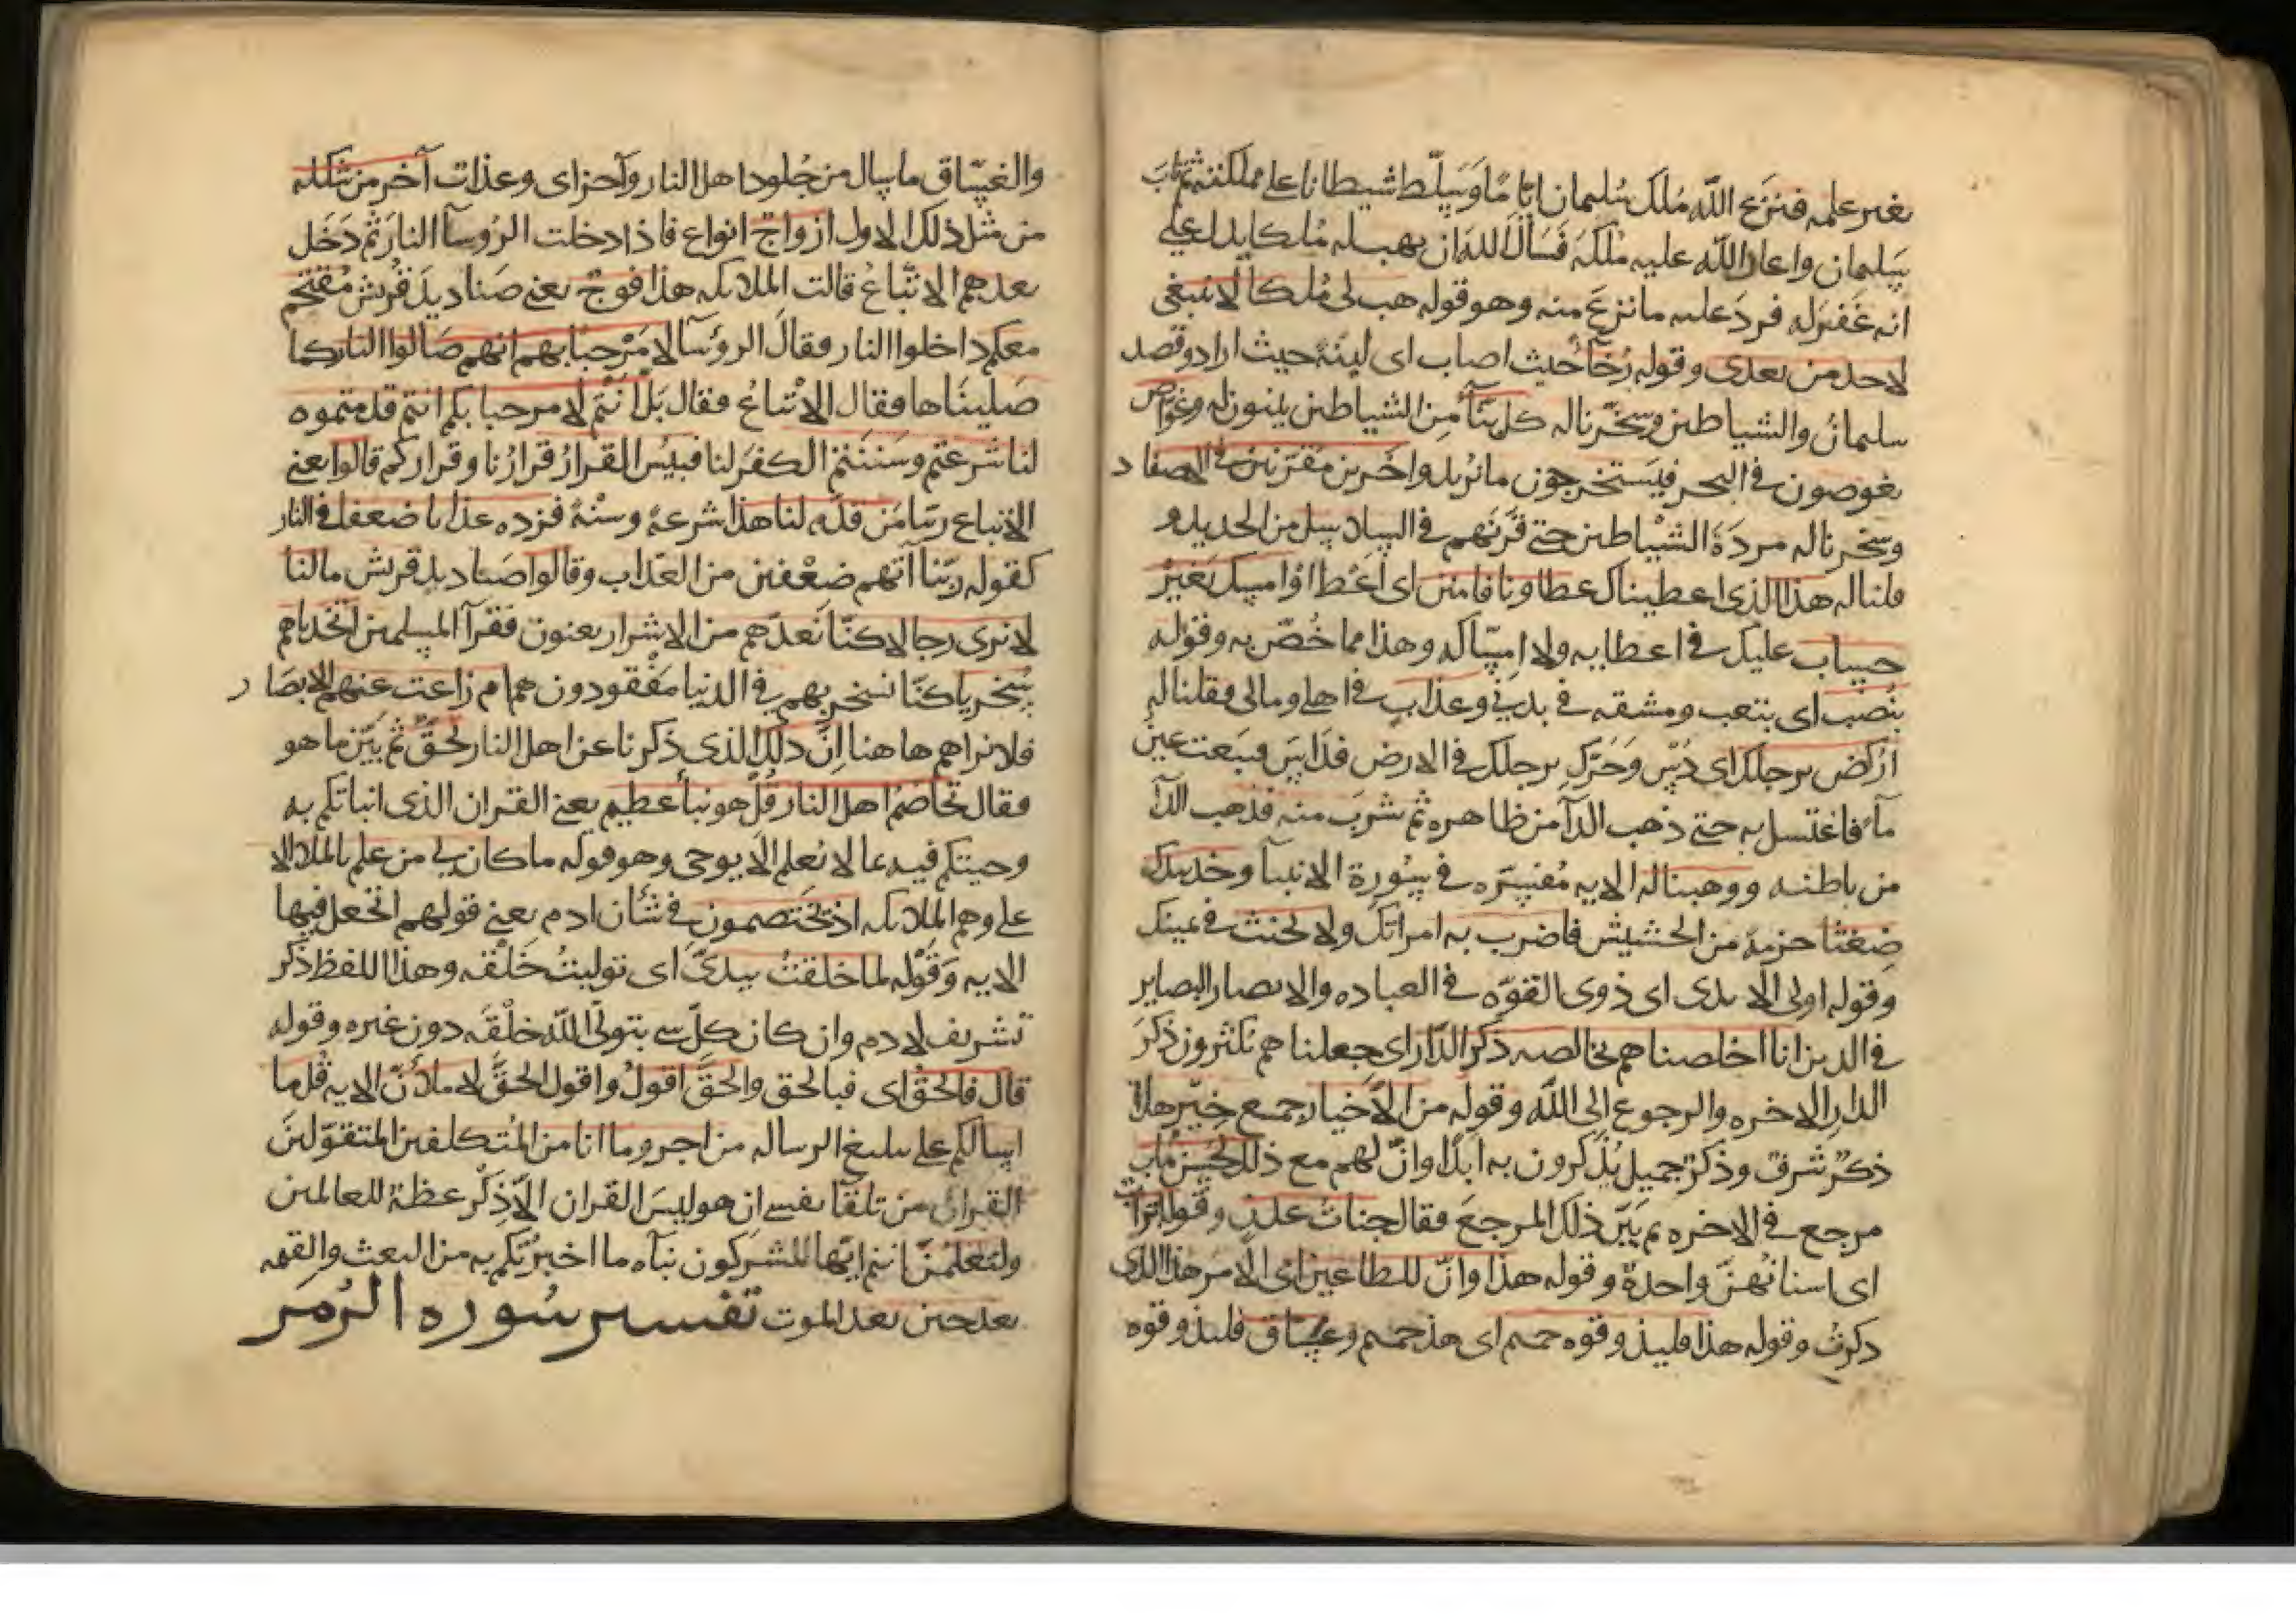 بغير علمه فنزع الله مُلك سُليمان ايّامًا وَسَلّط شيطانا على مملكته ثم تابَ
سليمان واعاد الله عليه مُلكَه فَسَألَ اللهَ ان يهب له مُلكا يدل على
انه غَفَرَ له فردَ عليه ما نزعَ منه وهو قوله هب لى مُلكا لا ينبغى
لاحد من بعدى وقوله رُخآءً حيث اصاب اى لينةً حيث اراد وقصد
سليمانُ والشياطين وسخّرنا له كل بنّآء مِن الشياطين يبنون له وغواص
يغوصون فى البحر فيَستخرجون ما يُريد واخرين مقرّنين فى الاصفاد
وسخرنا له مردَةَ الشيْاطين حتى قَرَنَهم فى السلاسل من الحديد و
قلنا له هذا الذى اعطيناك عطاونا فامنن اى اَعْط او امسك بغيرْ
حساب عليك فى اعطايه ولا اِمسَاكه وهذا مما خُصّ به وقوله
بنُصْب اى بتعب ومشقه فى بدنى وعذاب فى اهلى ومالى فقلنا له
اُرْكض برجلك اى دُسْ وَحَرّك برجلك فى الارض فدَاسَ فنبَعت عينُ
مآء فاغتسل به حتى ذهب الدآء من ظاهره ثم شربَ منه فذهب الدآء
من باطنه ووهبنا له الايه مُفسّره فى سُورة الانبيآ وخذ بيدك
ضِغثا حزمة من الحشيش فاضرب به امراتك ولا تحنث فى يمينك
وقوله اولى الايدى اى ذوى القوّه فى العباده والابصار البصاير
فى الدين انا اخلصناهم بخالصه ذكر الدّار اى جعلناهم يكثرون ذكرَ
الدار الاخره والرجوع الى الله وقوله من الاَخيار جمع خيّر هذا
ذكرٌ شرفٌ وذكرٌ جميل يُذكرون به ابدًا وانّ لهم مع ذلك لحُسنَ مآب
مرجع فى الاخره ثم بَيّن ذلك المرجعَ فقال جنات عدن وقوله اتراب
اى اسنانُهنّ واحدةٌ وقوله هذا وانّ للطاغين اى الامر هذا الذى
ذكرتُ وقوله هذا فليذوقوه حميم اى هذا حميم وغسّاق فليذوقوه
والغسّاق ما سال من جُلود اهل النار وآخر اى وعذاب آخر من شكله
من مثل ذلك الاول ازواجٌ انواع فاذا دخلت الرُوسآ النارَ ثم دَخَل
بعدهم الاتّباعُ قالت الملايكه هذا فوجٌ يعنى صَناديدَ قُريش مُقتحم
معكم داخلوا النار فقالَ الرؤسآ لا مَرْحبًا بهم انهم صَالُوا النار كما
صَليناها فقال الاتْباعُ فقال بَلْ اَنْتُم لا مرحبا بكم انتم قدمتموه
لنا شرعتم وسَننتم الكفرَ لنا فبيْسَ القرارُ قرارُنا وقراركم قالوا يعنى
الاتباع ربّنا مَن قدّم لنا هذا شرعهُ وسنّهُ فزده عذابا ضعفا فى النار
كقوله ربّنا آتهم ضِعْفين من العذاب وقالوا صَناديد قريش ما لنا
لا نرى رجالا كنّا نَعدّهم من الاشرار يعنون فقرآ المسلمين اتخذناهم
سُخريا كنّا نسخر بهم فى الدنيا مَفْقودون هم ام زاغت عنهم الابصَار
فلا نراهم هاهنا اِنّ ذلك الذى ذكرنا عن اهل النار لحَقٌّ ثم بيّن ما هو
فقال تخاصُم اهل النار قُلْ هو نبأ عظيم يعنى القران الذى انباتكم به
وجيتكم فيه بما لا يُعلم الاّ بوحى وهو قوله ما كان لى من علم بالملاء الا
على وهم الملايكه اذ يختصمون فى شأن ادم يعنى قولهم اتجعل فيها
الايه وَقَوْله لما خلقتُ بيدىّ اى توليتُ خَلْقه وهذا اللفظ ذكر
تشريف لادم وان كان كلّ شى يتولّى الله خلْقَه دون غيره وقوله
قال فالحقُّ اى فبالحق والحقَّ اقولُ واقول الحقَّ لاملاَنّ الايه قُل ما
اسالكم على تبليغ الرساله من اجر وما انا من المُتكلفين المتقوّلينَ
القرانَ من تلقآ نفسى ان هو ليسَ القران الاّ ذِكْر عظة للعالمين
ولتعلمُنّ انتم ايّها المُشركون نبآه ما اخبرُتكم به من البعث والقيمه
بعد حين بعد الموت تفسير سُوره الزُمَر